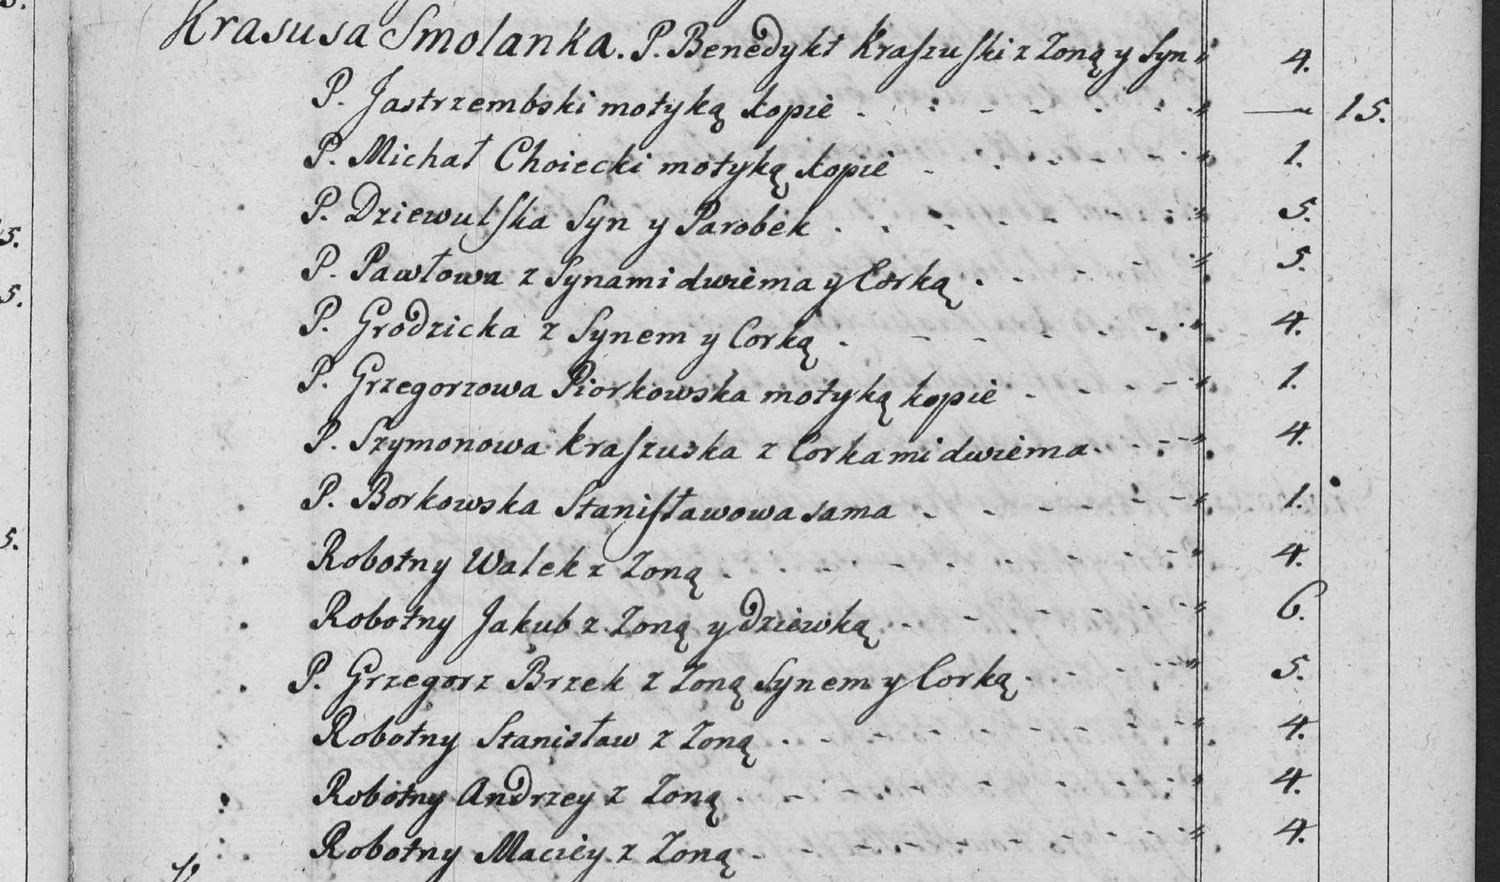 Krasusa Smolanka. P. Benedykt Kraszuski z Zoną y Syn 4.
P. Jastrzembski motyką kopie — 15.
P. Michał Choiecki motyką kopie 1.
P. Dziewulska Syn y Parobek 5.
P. Pawłowa z Synami dwiema y Corką 5.
P. Grodzicka z Synem y Corką 4.
P. Grzegorzowa Piorkowska motyką kopie 1.
P. Szymonowa Kraszuska z Corkami dwiema 4.
P. Borkowska Stanisławowa sama 1.
Robotny Walek z Zoną 4.
Robotny Jakub z Zoną y dziewką 6.
P. Grzegorz Brzek z Zoną Synem y Corką 5.
Robotny Stanisław z Zoną 4.
Robotny Andrzey z Zoną 4.
Robotny Maciey z Zoną 4.